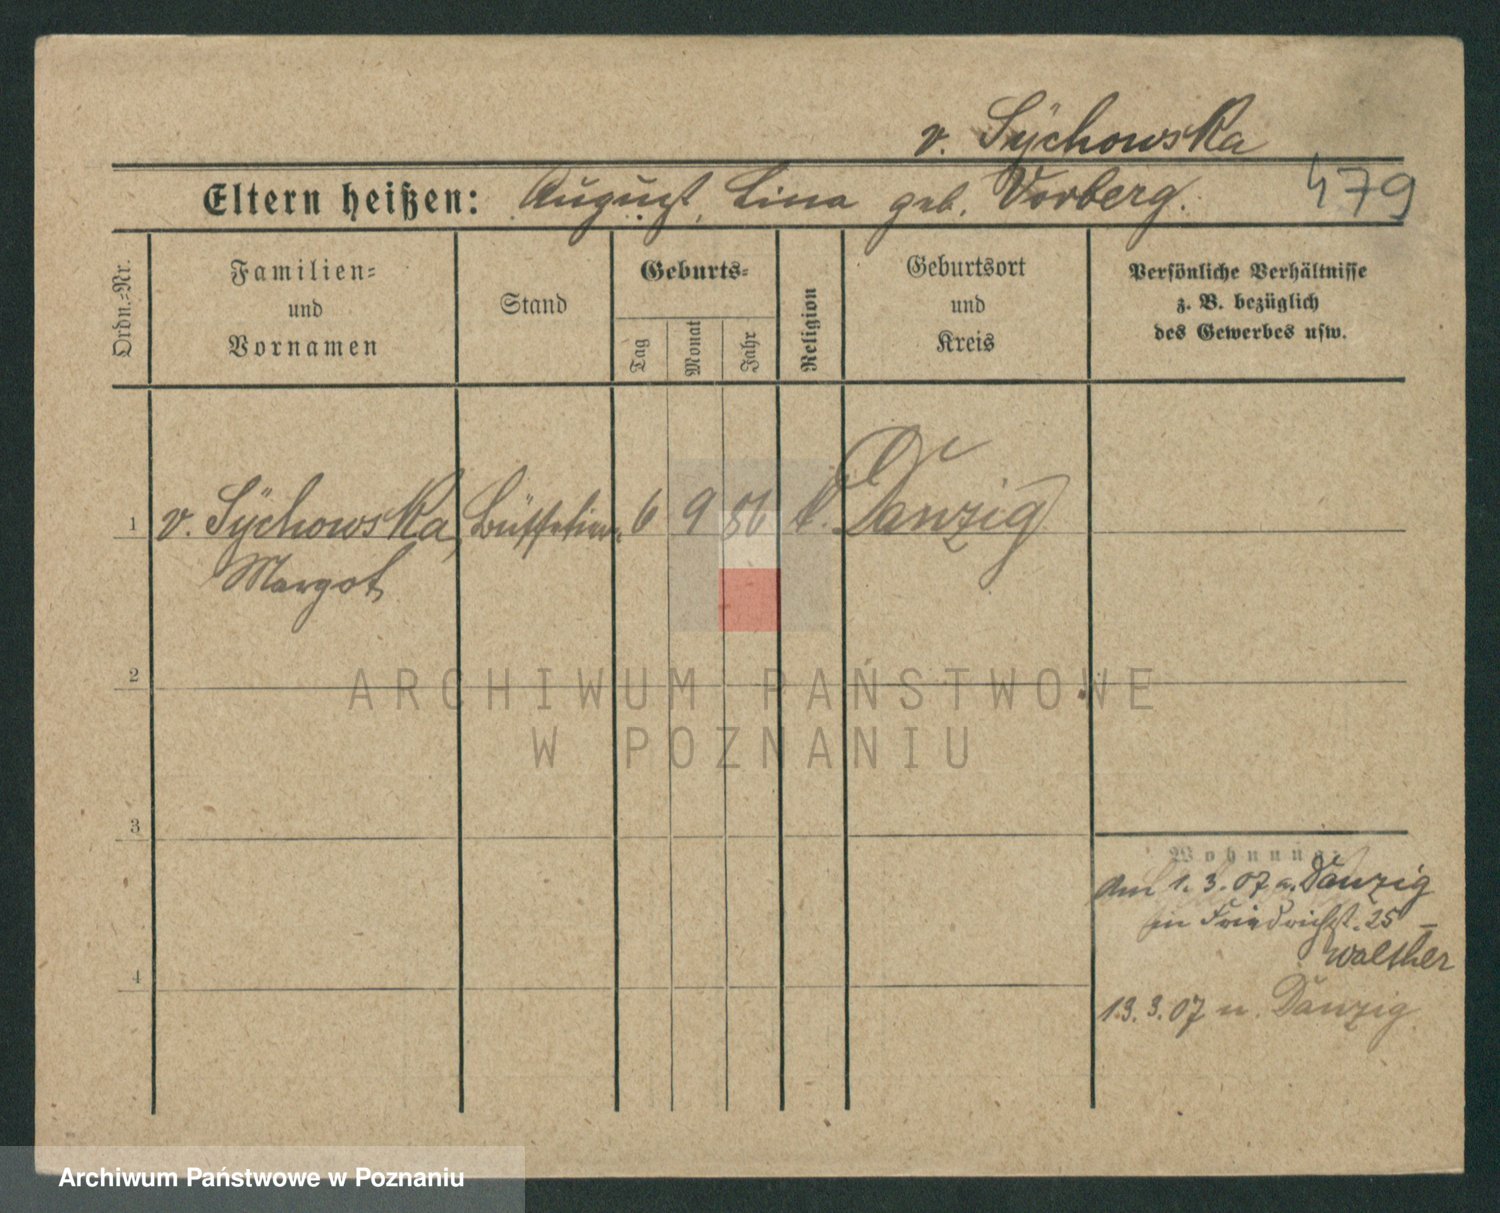 v. Sÿchowska
Eltern heißen: August, Lina geb. Vorberg.
479
Ordn.=Nr.
Familien=
und
Vornamen
Stand
Geburts=
Tag
Monat
Jahr
Religion
Geburtsort
und
Kreis
Persönliche Verhältnisse
z. B. bezüglich
des Gewerbes usw.
1 v. Sÿchowska, 6 9 86 k. Danzig
Margot
2
ARCHIWUM PAŃSTWOWE
W POZNANIU
3
Wohnung
am 1. 3. 07 a. Danzig
in Friedrichst. 25 –
Walther
4
13. 3. 07 n. Danzig
Archiwum Państwowe w Poznaniu